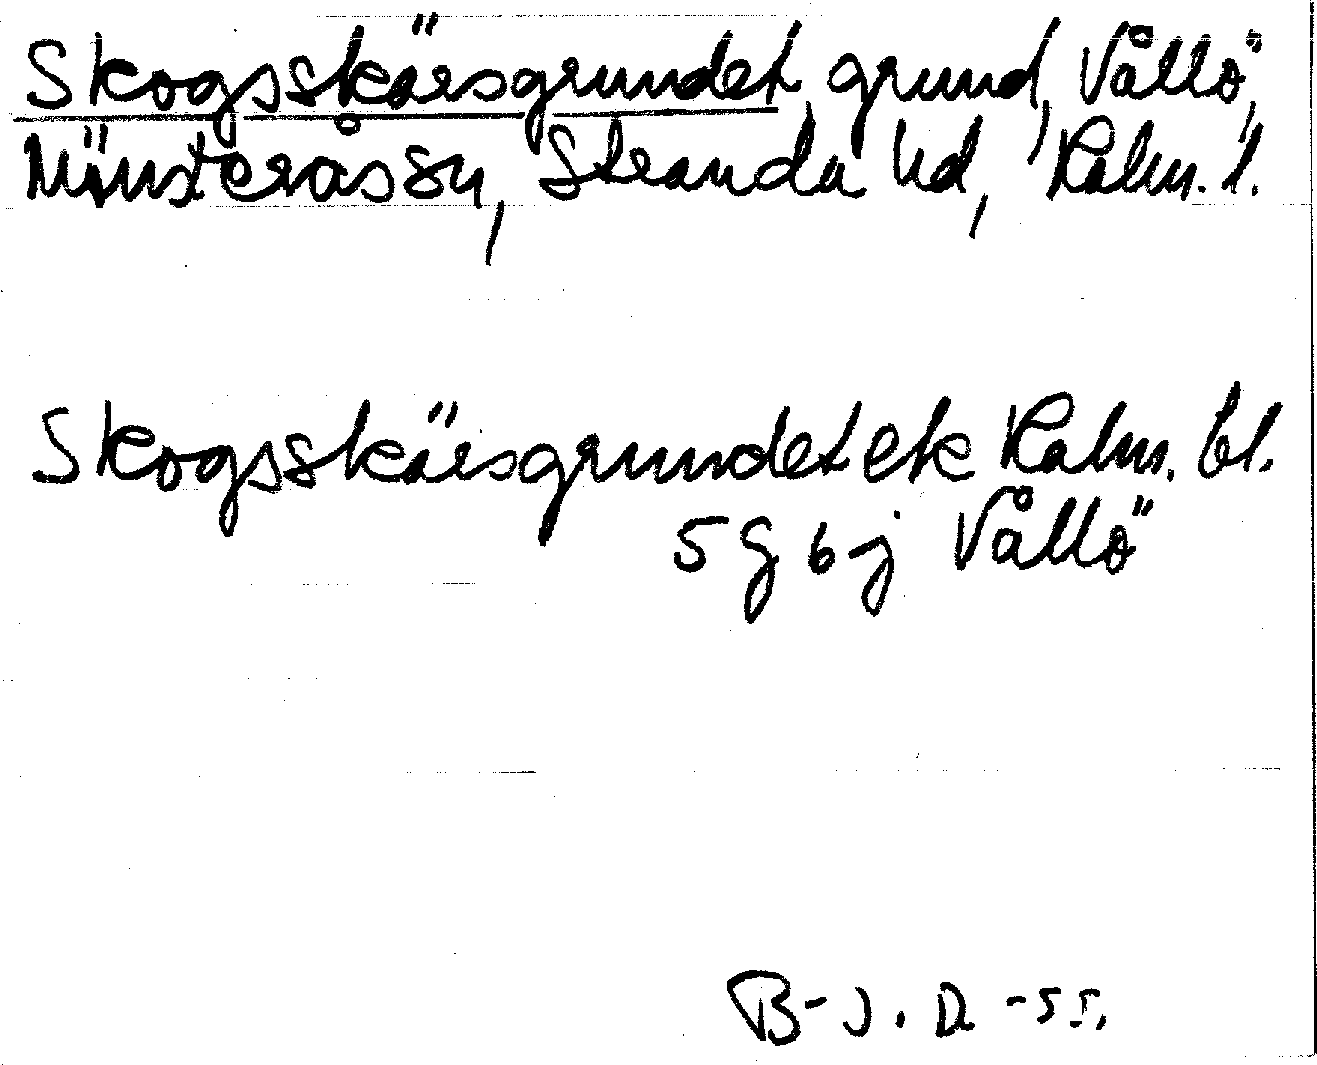 Skogsskärsgrundet, grund, Vållö,
Mönsterås sn, Stranda hd, Kalm. l.
Skogsskärsgrundet ek Kalm. bl.
5 g 6 j Vållö
B-J. D. -55.